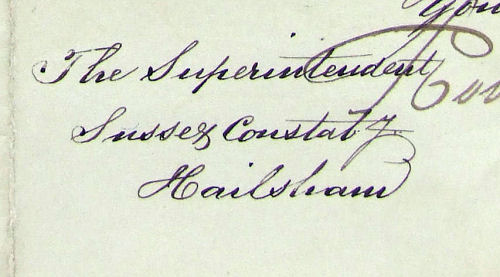 The Superintendent
Sussex Constaby
Hailsham